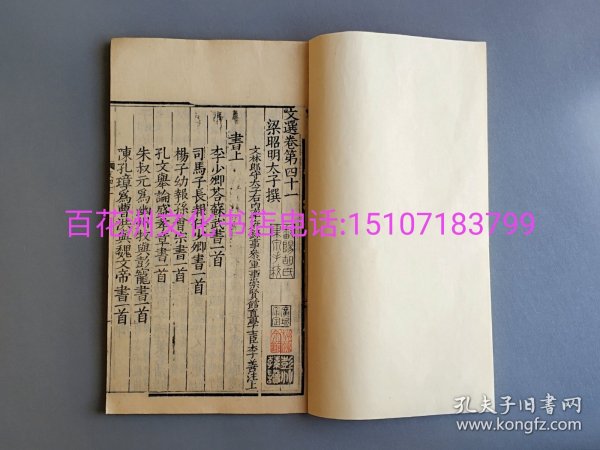 文選卷第四十一
梁昭明太子撰
文林郎守太子右內率府錄事參軍事崇賢館直學士臣李善注上
書上
李少卿荅蘇武書一首
司馬子長報任少卿書一首
楊子幼報孫會宗書一首
孔文舉論盛孝章書一首
朱叔元為幽州牧與彭寵書一首
陳孔璋為曹洪與魏文帝書一首
百花洲文化书店电话:15107183799
孔夫子旧书网
www.kongfz.com